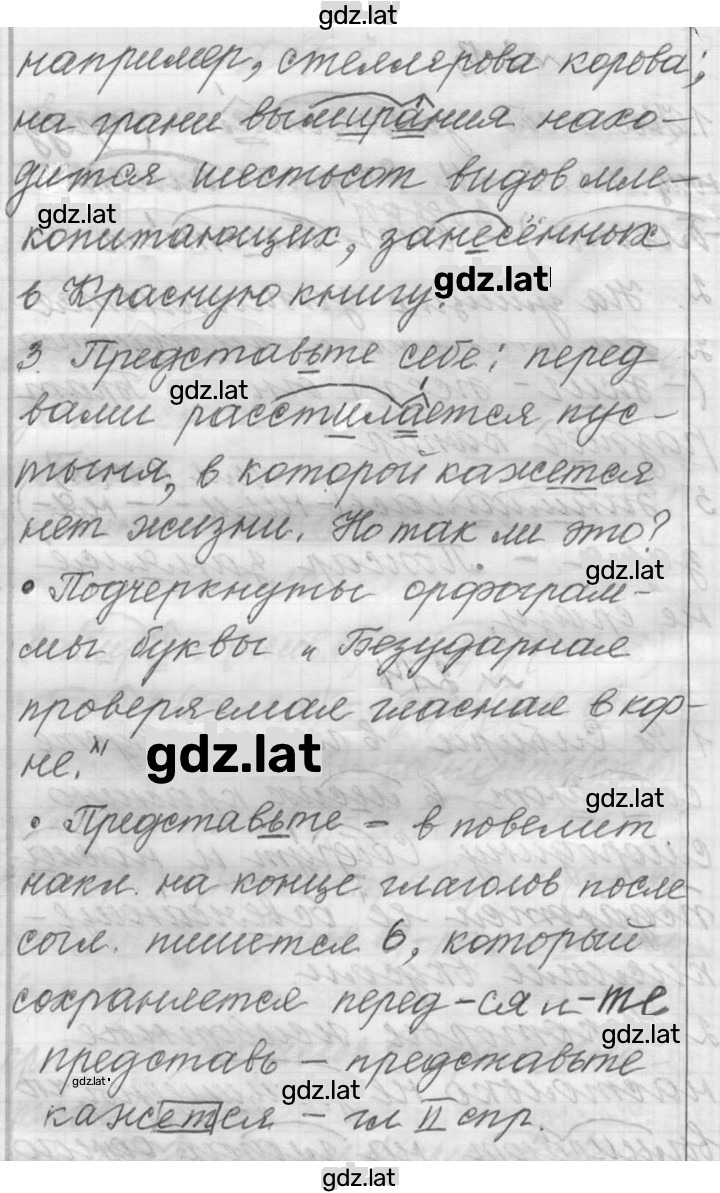 gdz.lat
например, стеллярова корова;
на грани вымирания нахо-
дится шестьсот видов мле-
gdz.lat
копитающих, занесённых
в Красную книгу.
gdz.lat
3. Представьте себе: перед
gdz.lat
вами расстилается пус-
тыня, в которой кажется
нет жизни. Но так ли это?
gdz.lat
• Подчеркнуты орфограм-
мы буквы и "Безударная
проверяемая гласная в кор-
не."
gdz.lat
gdz.lat
• Представьте – в повелит.
накл. на конце глаголов после
согл. пишется ь, который
сохраняется перед -ся и -те
gdz.lat
представь – представьте
gdz.lat
gdz.lat
кажется – гл II спр.
gdz.lat